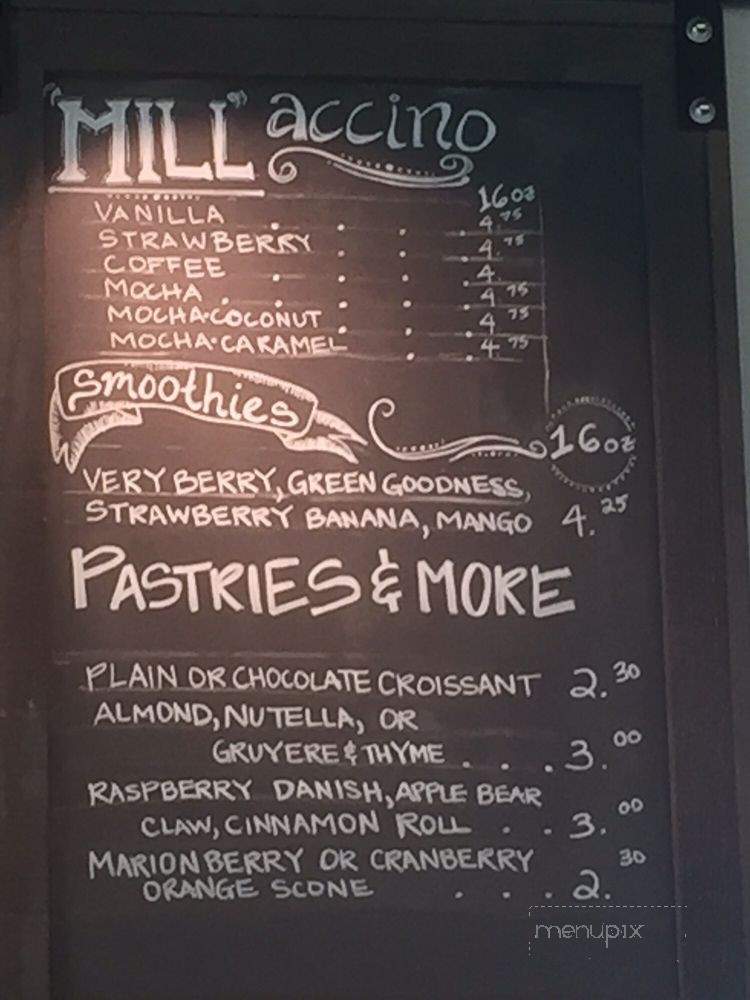 "MILL" accino
16oz
VANILLA . . . 4.75
STRAWBERRY . . . 4.75
COFFEE . . . 4.
MOCHA . . . . 4.75
MOCHA·COCONUT . . . 4.75
MOCHA·CARAMEL . . 4.75
Smoothies 16oz
VERY BERRY, GREEN GOODNESS,
STRAWBERRY BANANA, MANGO 4.25
PASTRIES & MORE
PLAIN OR CHOCOLATE CROISSANT 2.30
ALMOND, NUTELLA, OR
GRUYERE & THYME . . . 3.00
RASPBERRY DANISH, APPLE BEAR
CLAW, CINNAMON ROLL . . 3.00
MARIONBERRY OR CRANBERRY
ORANGE SCONE . . . 2.30
menupix